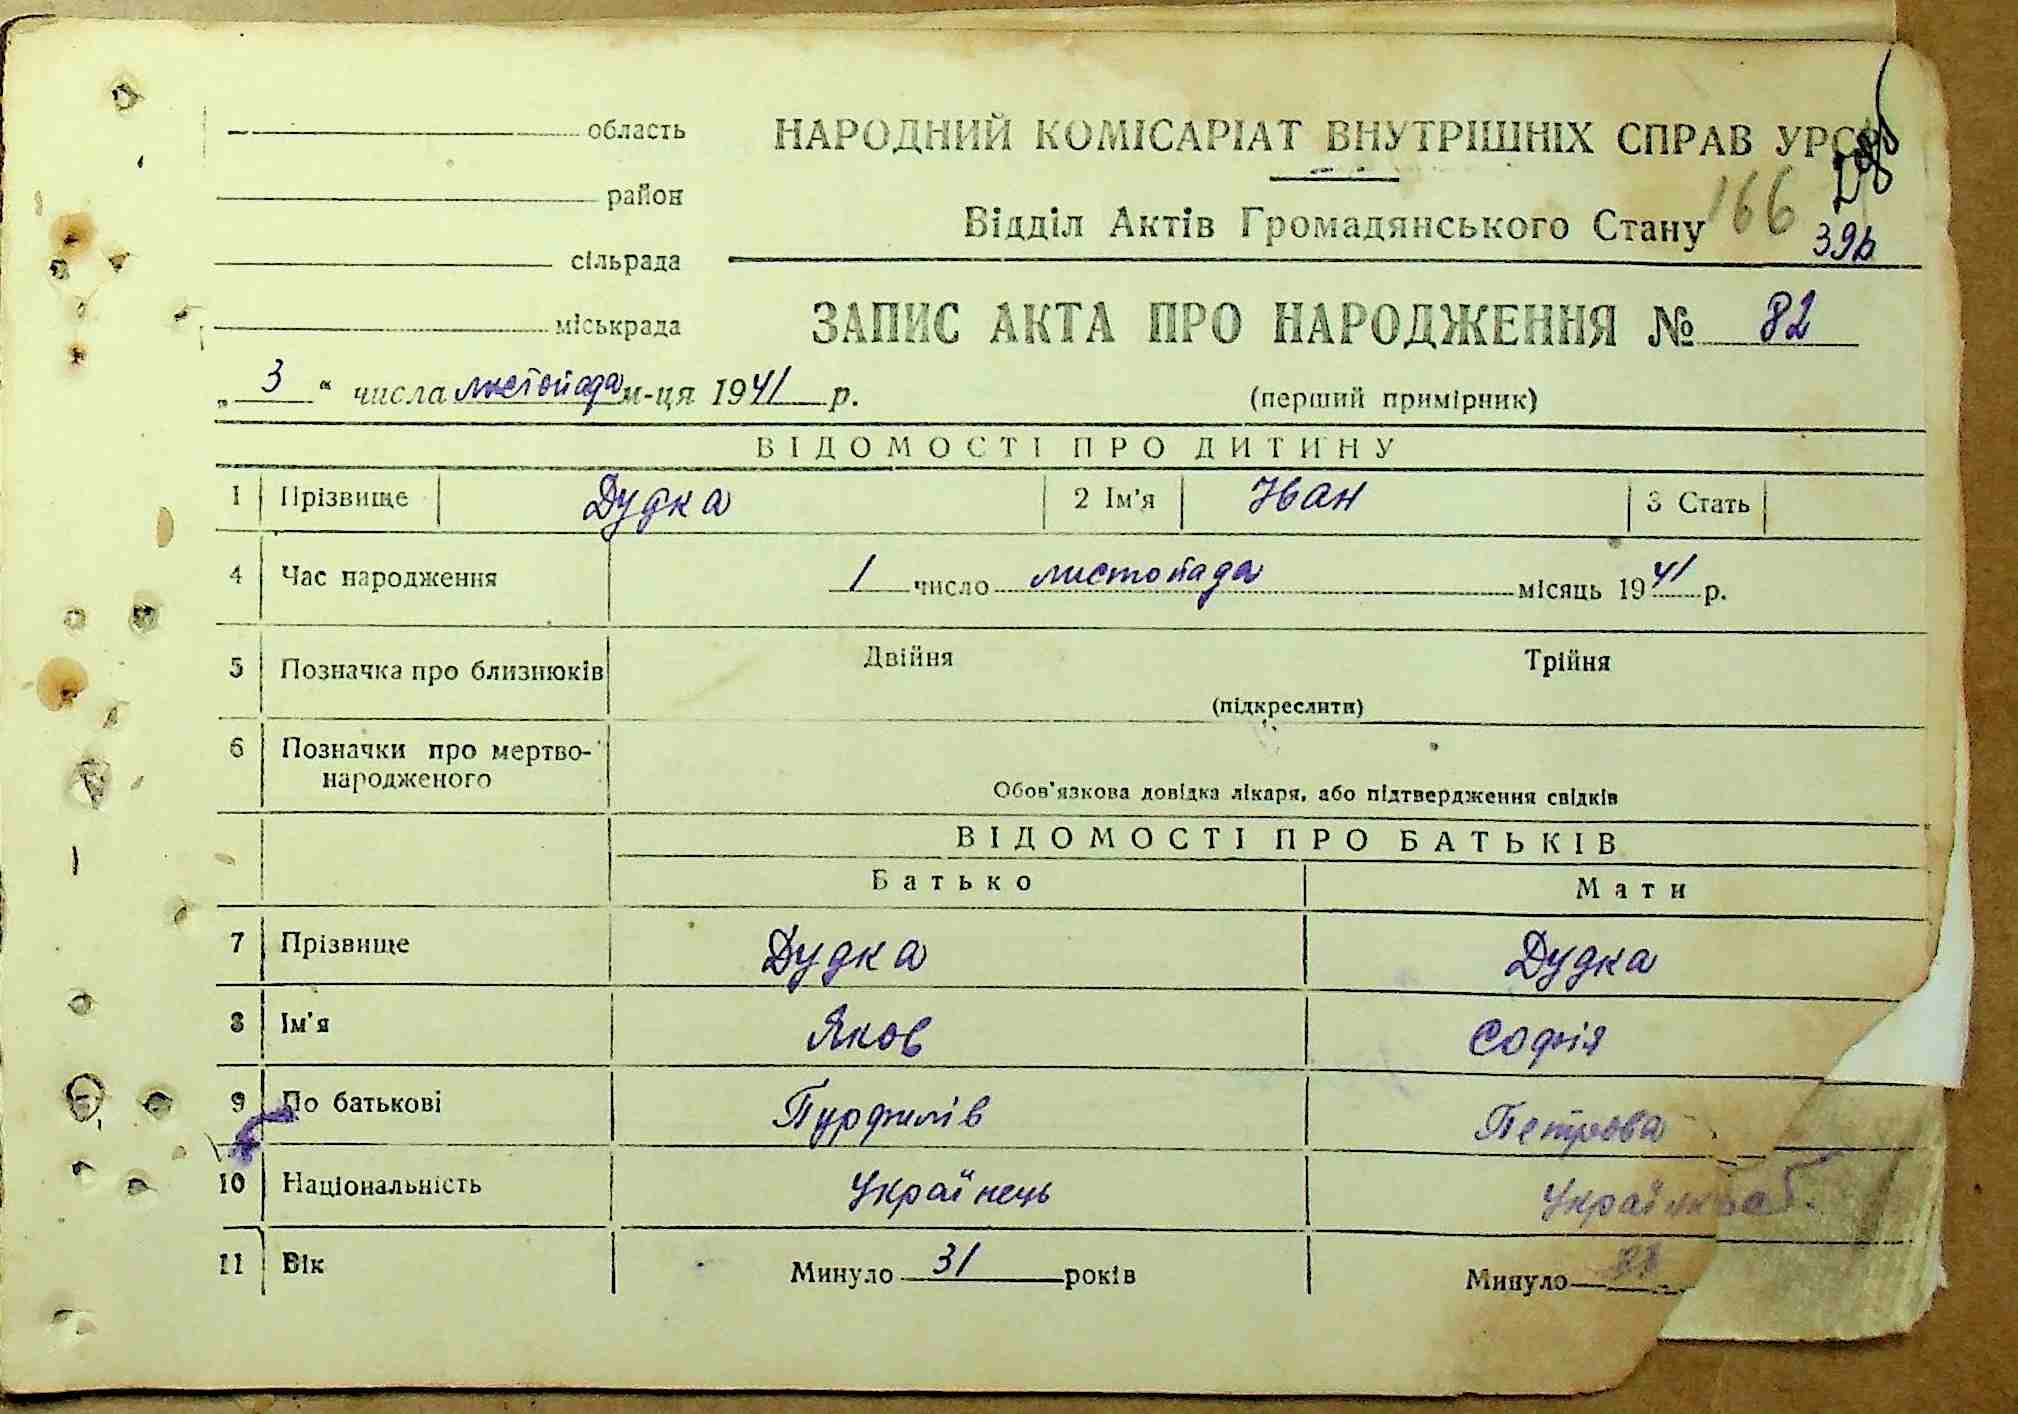 область
НАРОДНИЙ КОМІСАРІАТ ВНУТРІШНІХ СПРАВ УРСР
район
Відділ Актів Громадянського Стану 166
39в
сільрада
міськрада
ЗАПИС АКТА ПРО НАРОДЖЕННЯ № 82
„ 3 “ числа листопада м-ця 1941 р.
(перший примірник)
ВІДОМОСТІ ПРО ДИТИНУ
1 Прізвище Дудка 2 Ім'я Іван 3 Стать
4 Час народження 1 число листопада місяць 1941 р.
5 Позначка про близнюків Двійня Трійня
(підкреслити)
6 Позначки про мертво-
народженого
Обов'язкова довідка лікаря, або підтвердження свідків
ВІДОМОСТІ ПРО БАТЬКІВ
Батько Мати
7 Прізвище Дудка Дудка
8 Ім'я Яков Софія
9 По батькові Пурфилів Петрова
10 Національність Українець
11 Вік Минуло 31 років Минуло